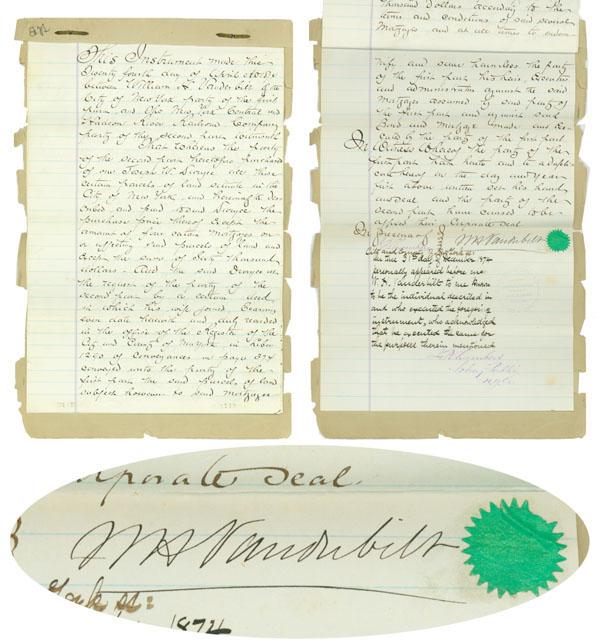 This Instrument made this
Twenty fourth day of April 1874
between William H. Vanderbilt of the
City of New York party of the first
part, and the New York Central and
Hudson River Railroad Company
party of the second part Witnesseth
That Whereas the party
of the second part heretofore purchased
of one James W. those
certain parcels of land situate in the
City of New York, and
and paid said the
purchase price thereof except the
amount of four certain Mortgages on
or affecting said parcels of land and
except the sum of Six Thousand
dollars And said
the request of the party of the
second part by a certain deed
in which his wife joined bearing
even date herewith and duly recorded
in the office of the Register of the
City and County of New York in Liber
1290 of conveyances on page 374
conveyed unto the party of the
first part the said parcels of land
subject however to said mortgages
Thousand Dollars according to the
terms and conditions of said several
Mortgages and at all times to
and save harmless the party
of the first part his heirs, executors
and administrators against the said
Mortgages assumed by said party of
the first part and against said
Bond and Mortgage made and
by the party of the first part
In Witness Whereof the party of the
first part hath hereto and to a duplicate
hereof on the day and year
first above written set his hand
and seal and the party of the
second part have caused to be
affixed their Corporate Seal.
In presence of
W H Vanderbilt
On this 31st day of December 1874
personally appeared before me
W. H. Vanderbilt to me known
to be the individual described in
and who executed the foregoing
instrument, who acknowledged
that he executed the same for
the purposes therein mentioned
Notary Public
N.Y. Co.
Corporate Seal.
W H Vanderbilt
York ss:
1874